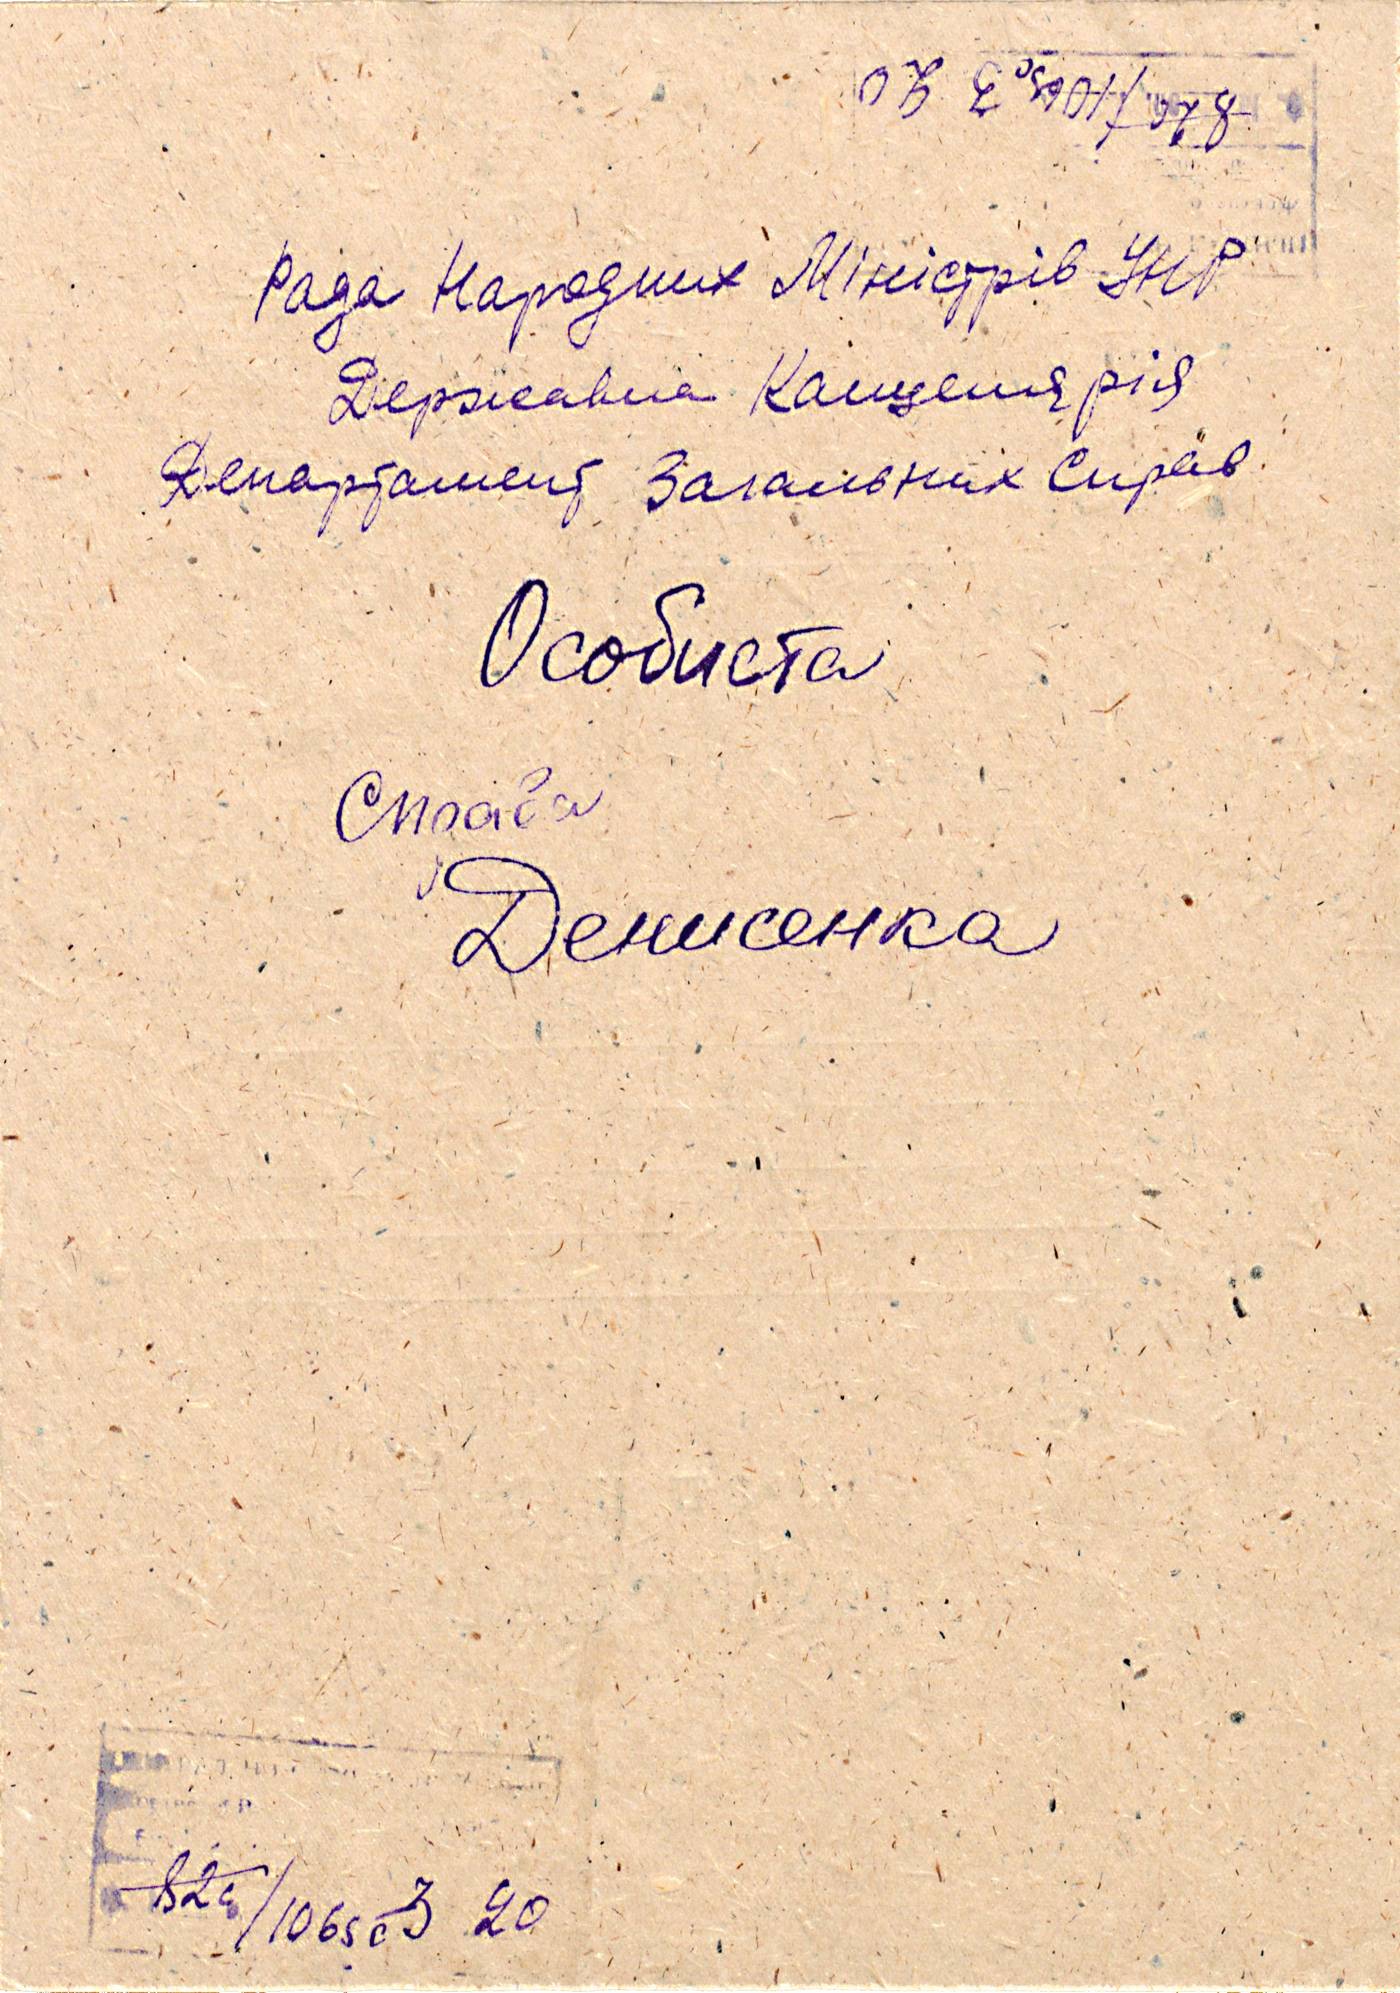 Рада Народних Міністрів УНР
Державна Канцелярія
Департамент Загальних Справ
Особиста
Справа
Денисенка
20